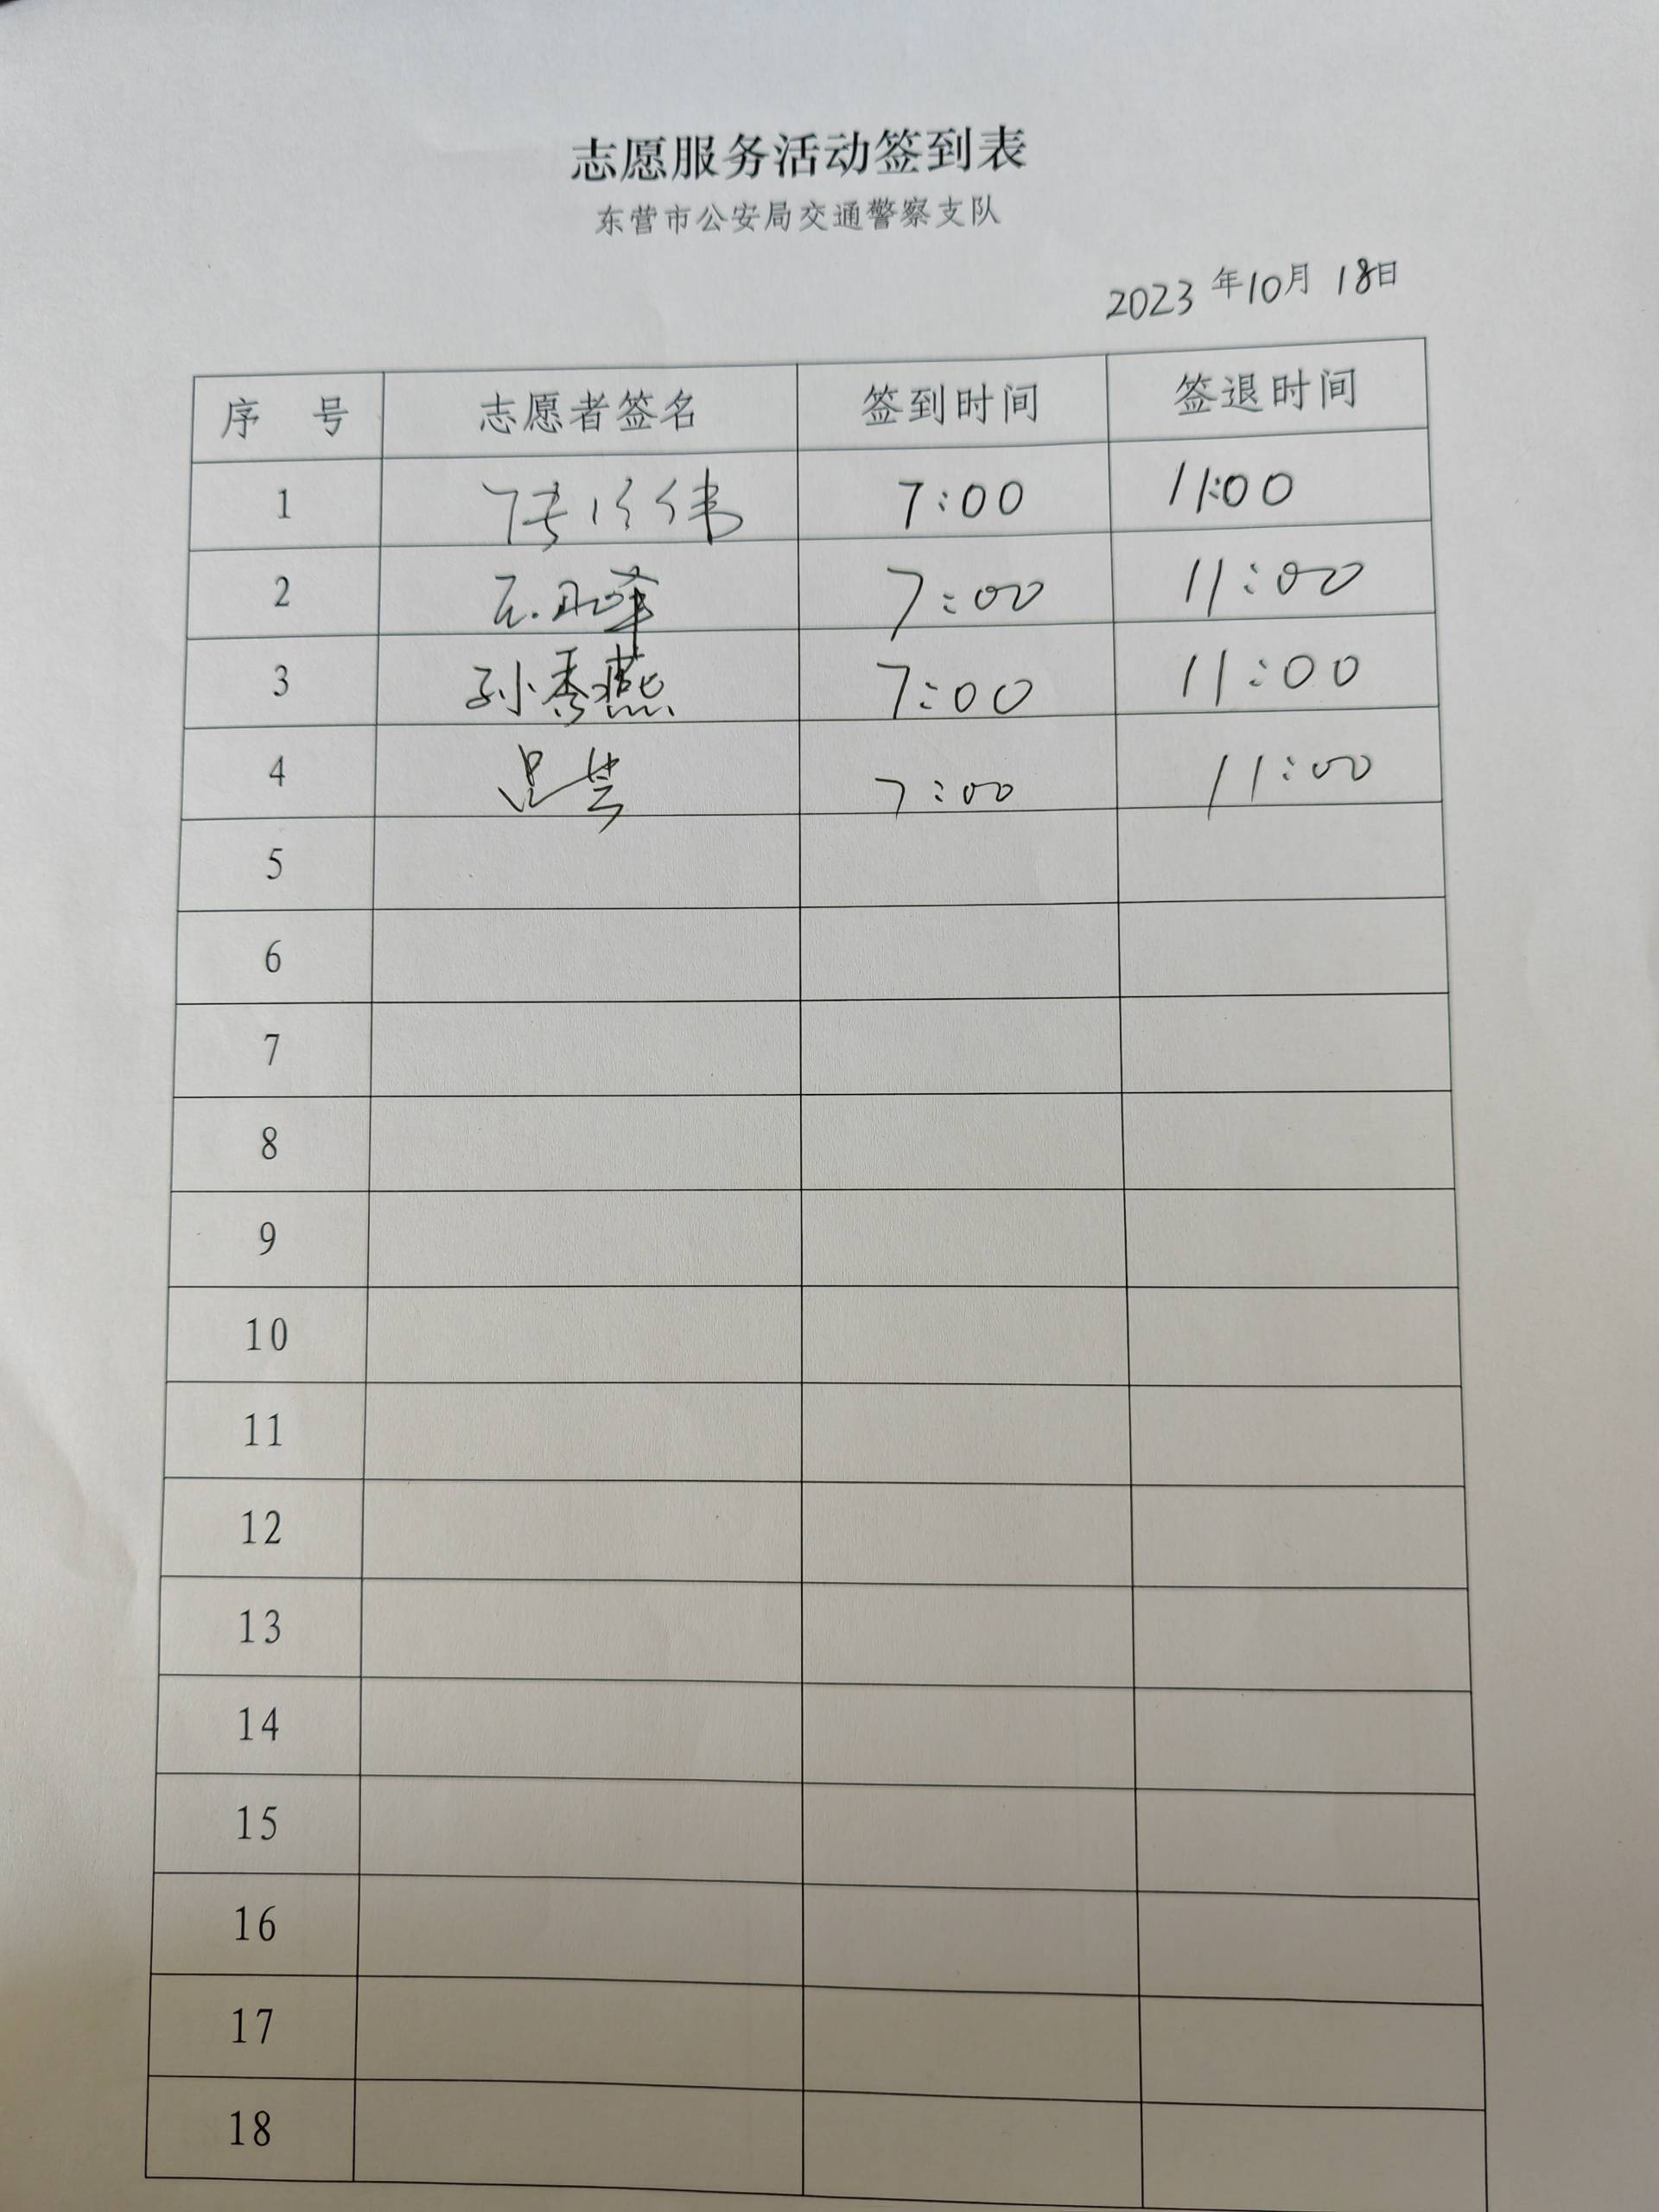 志愿服务活动签到表
东营市公安局交通警察支队
2023 年10月 18日
序 号 志愿者签名 签到时间 签退时间
1 7:00 11:00
2 7:00 11:00
3 孙秀燕 7:00 11:00
4 7:00 11:00
5
6
7
8
9
10
11
12
13
14
15
16
17
18